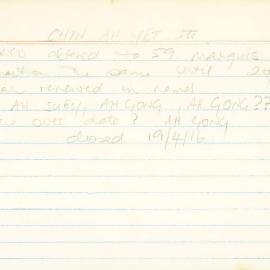 CHIN AH YET etc
altered to 59 marquis
the same until
renewed in names
AH SUEY, AH GONG, AH GONG??
over date? AH GONG
closed 19/4/16